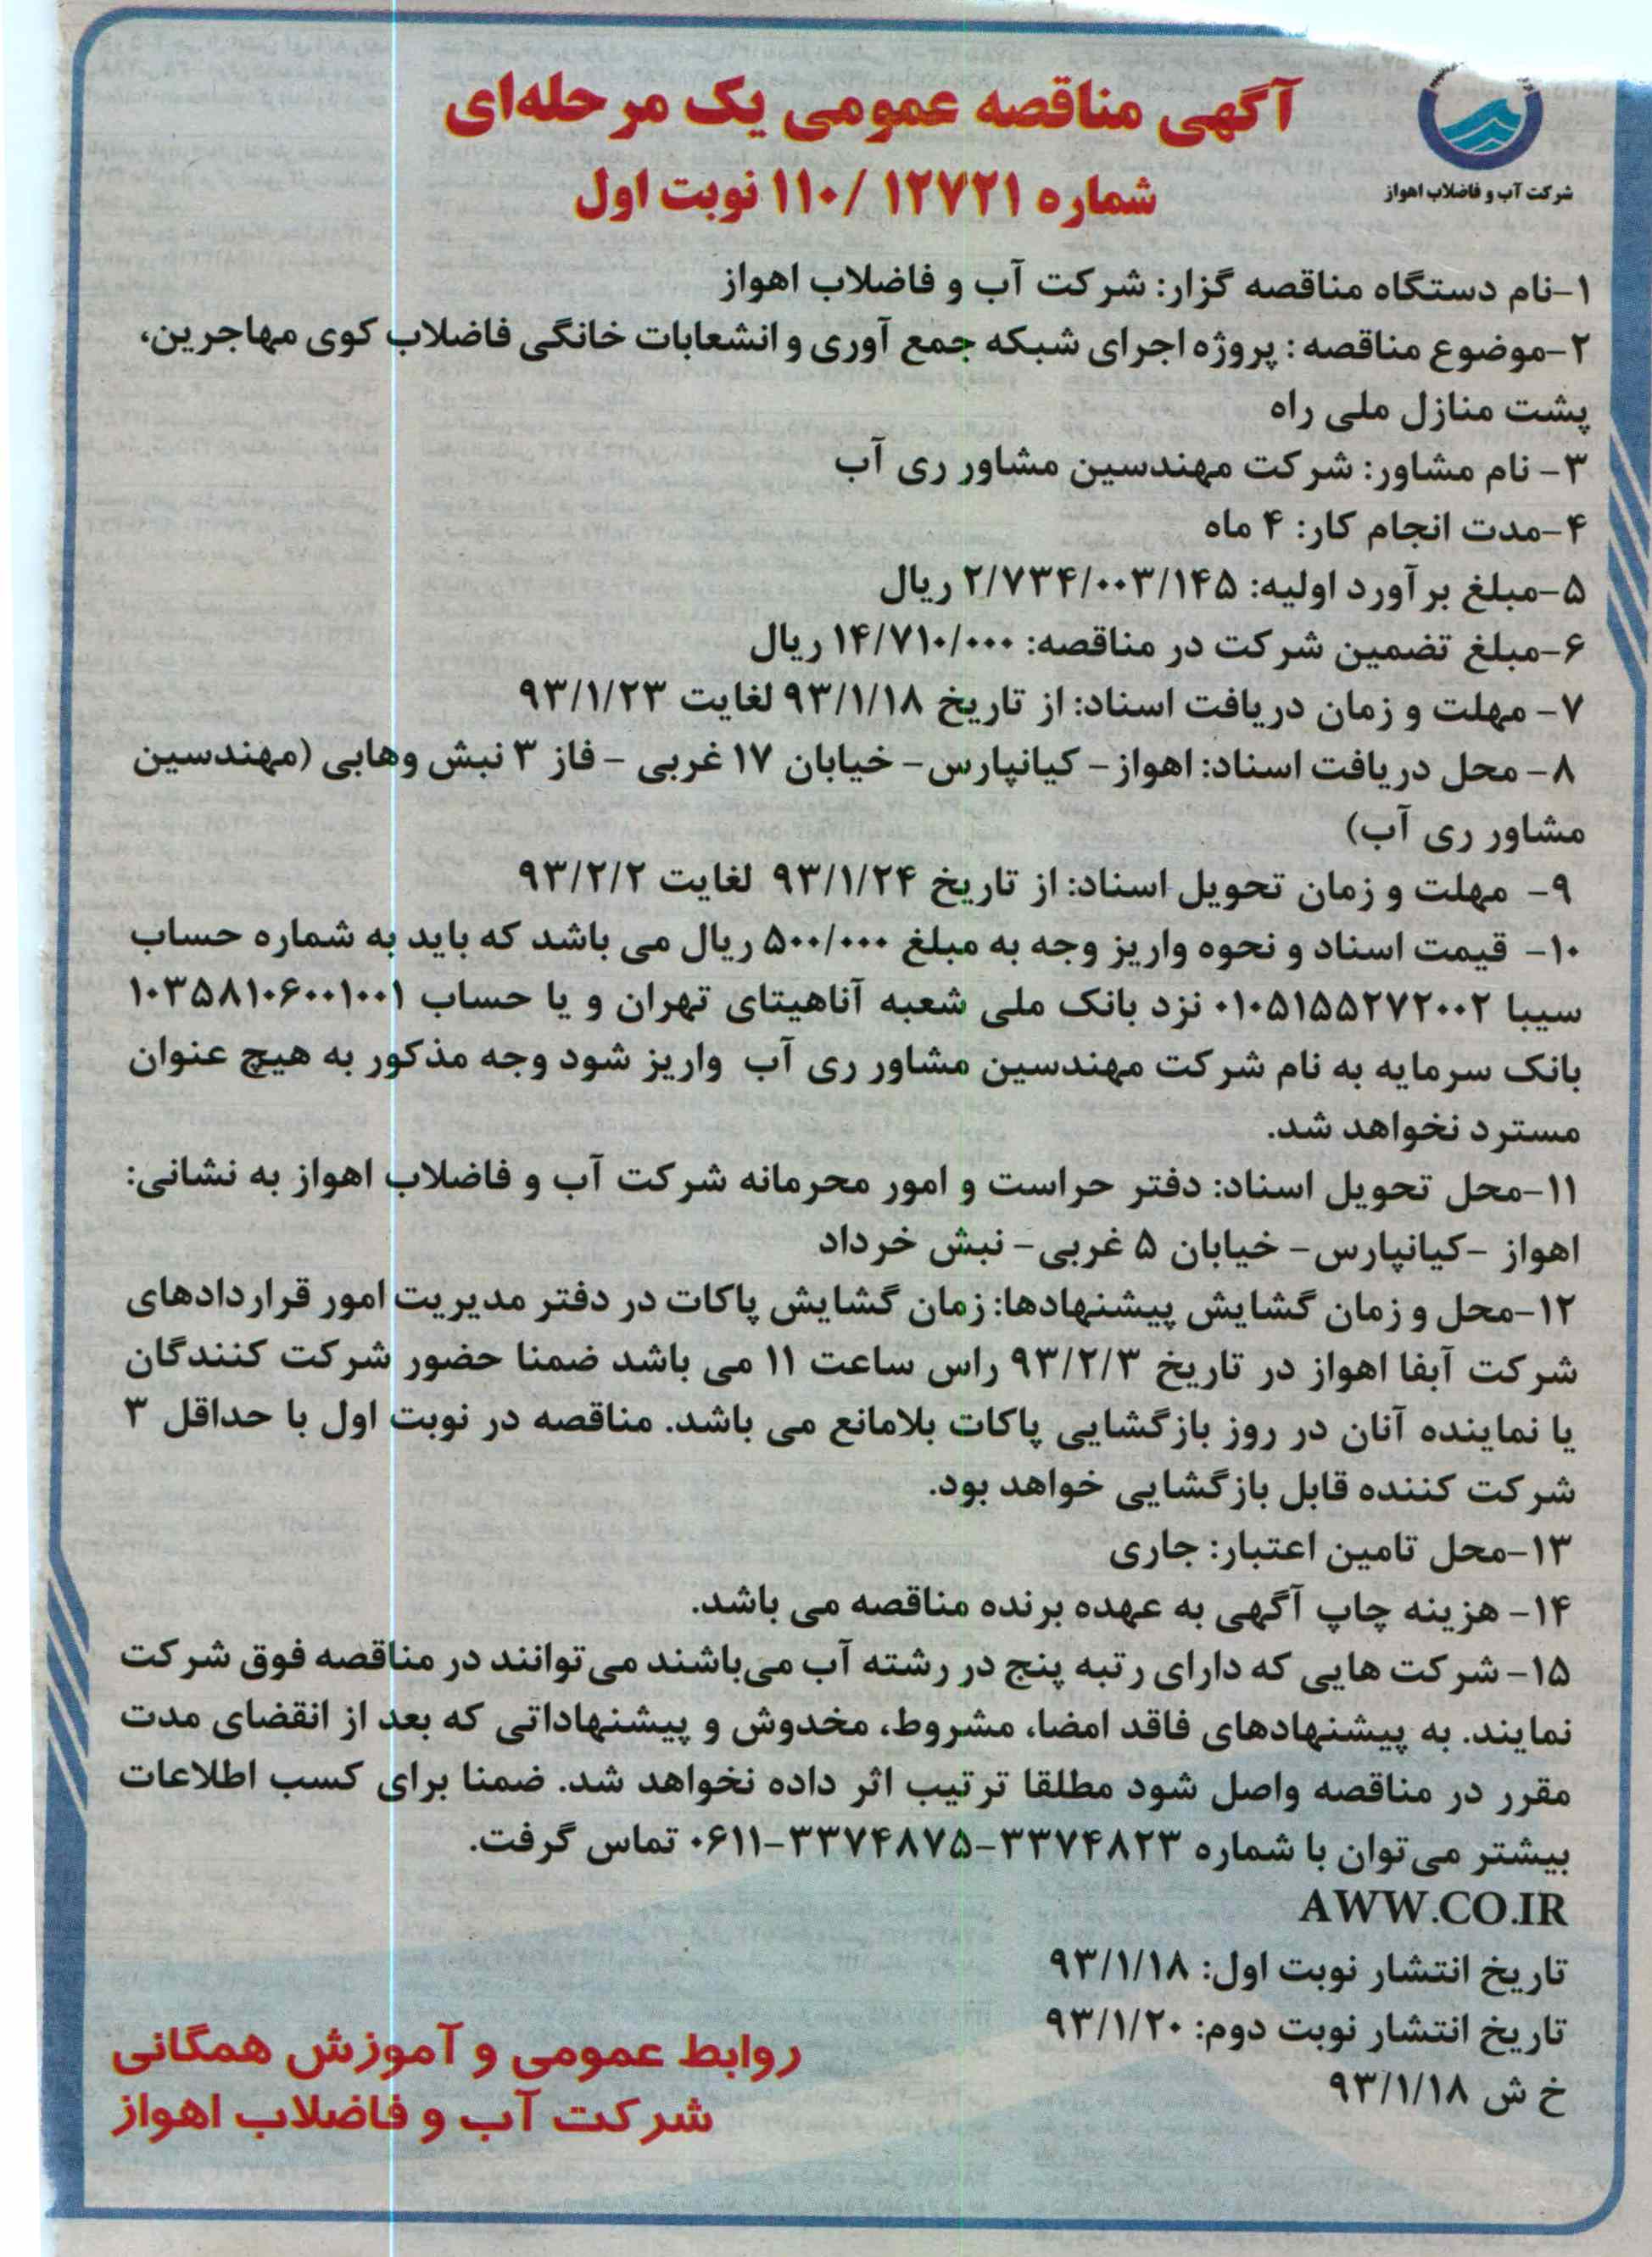 شرکت آب و فاضلاب اهواز
آگهی مناقصه عمومی یک مرحله‌ای
شماره ۱۲۷۲۱ /۱۱۰ نوبت اول
۱-نام دستگاه مناقصه گزار: شرکت آب و فاضلاب اهواز
۲-موضوع مناقصه : پروژه اجرای شبکه جمع آوری و انشعابات خانگی فاضلاب کوی مهاجرین،
پشت منازل ملی راه
۳- نام مشاور: شرکت مهندسین مشاور ری آب
۴-مدت انجام کار: ۴ ماه
۵-مبلغ بر آورد اولیه: ۲/۷۳۴/۰۰۳/۱۴۵ ریال
۶-مبلغ تضمین شرکت در مناقصه: ۱۴/۷۱۰/۰۰۰ ریال
۷- مهلت و زمان دریافت اسناد: از تاریخ ۹۳/۱/۱۸ لغایت ۹۳/۱/۲۳
۸- محل دریافت اسناد: اهواز- کیانپارس- خیابان ۱۷ غربی - فاز ۳ نبش وهابی (مهندسین
مشاور ری آب)
۹- مهلت و زمان تحویل اسناد: از تاریخ ۹۳/۱/۲۴ لغایت ۹۳/۲/۲
۱۰- قیمت اسناد و نحوه واریز وجه به مبلغ ۵۰۰/۰۰۰ ریال می باشد که باید به شماره حساب
سیبا ۰۱۰۵۱۵۵۲۷۲۰۰۲ نزد بانک ملی شعبه آناهیتای تهران و یا حساب ۱۰۳۵۸۱۰۶۰۰۱۰۰۱
بانک سرمایه به نام شرکت مهندسین مشاور ری آب واریز شود وجه مذکور به هیچ عنوان
مسترد نخواهد شد.
۱۱-محل تحویل اسناد: دفتر حراست و امور محرمانه شرکت آب و فاضلاب اهواز به نشانی:
اهواز -کیانپارس- خیابان ۵ غربی- نبش خرداد
۱۲-محل و زمان گشایش پیشنهادها: زمان گشایش پاکات در دفتر مدیریت امور قراردادهای
شرکت آبفا اهواز در تاریخ ۹۳/۲/۳ راس ساعت ۱۱ می باشد ضمنا حضور شرکت کنندگان
یا نماینده آنان در روز بازگشایی پاکات بلامانع می باشد. مناقصه در نوبت اول با حداقل ۳
شرکت کننده قابل بازگشایی خواهد بود.
۱۳-محل تامین اعتبار: جاری
۱۴- هزینه چاپ آگهی به عهده برنده مناقصه می باشد.
۱۵- شرکت هایی که دارای رتبه پنج در رشته آب می‌باشند می‌توانند در مناقصه فوق شرکت
نمایند. به پیشنهادهای فاقد امضا، مشروط، مخدوش و پیشنهاداتی که بعد از انقضای مدت
مقرر در مناقصه واصل شود مطلقا ترتیب اثر داده نخواهد شد. ضمنا برای کسب اطلاعات
بیشتر می‌توان با شماره ۳۳۷۴۸۲۳-۳۳۷۴۸۷۵-۰۶۱۱ تماس گرفت.
AWW.CO.IR
تاریخ انتشار نوبت اول: ۹۳/۱/۱۸
تاریخ انتشار نوبت دوم: ۹۳/۱/۲۰
خ ش ۹۳/۱/۱۸
روابط عمومی و آموزش همگانی
شرکت آب و فاضلاب اهواز